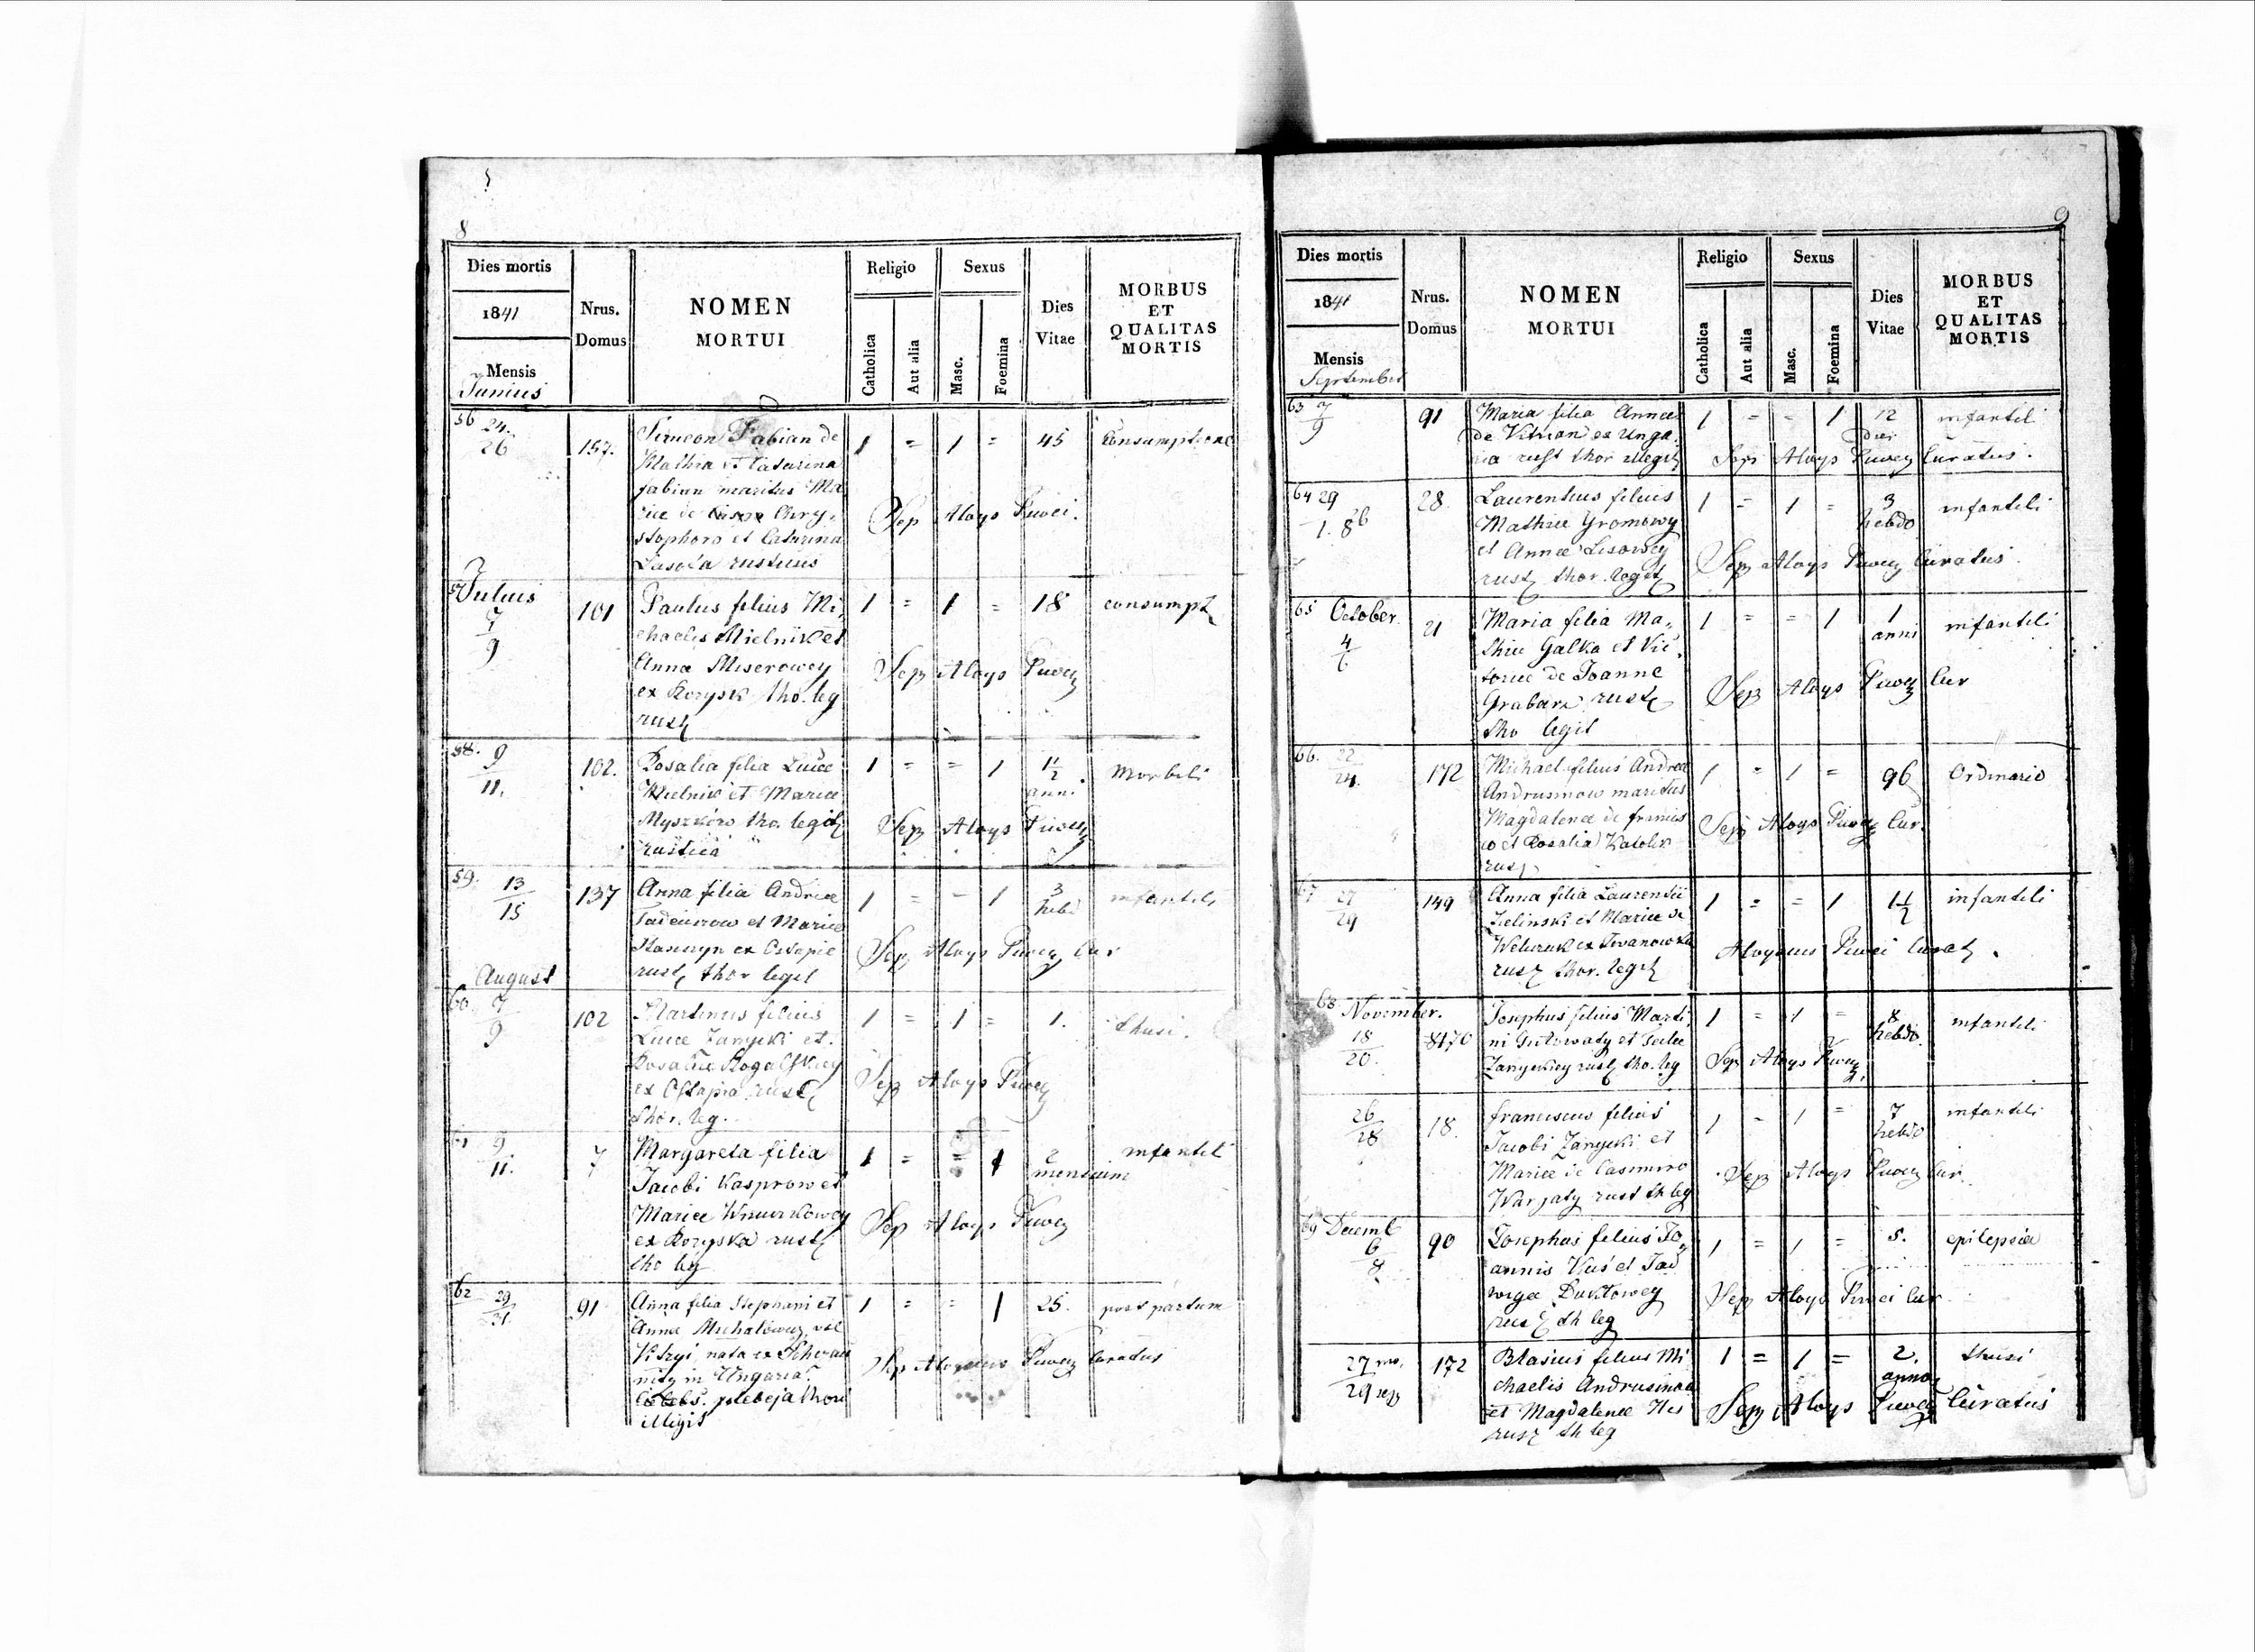 8
Dies mortis
1841
Mensis
Junius
Nrus.
Domus
NOMEN
MORTUI
Religio
Catholica
Aut alia
Sexus
Masc.
Foemina
Dies
Vitae
MORBUS
ET
QUALITAS
MORTIS
56 24.
26
157.
Simeon Fabian de
Mathia et Catarina
fabian maritus Ma
riae de Chry,
stophoro et Catarina
Lasota rusticis
1 = 1 = 45 Consumptione
Sep Aloys Puwei.
57 Julius
7
9
101
Paulus filius Mi,
chaelis Mielnik et
Anna Miserowey
ex Korzysk tho. leg
rust
1 = 1 = 18 consumpt
Sep Aloys Puwey
58. 9
11.
102.
Rosalia filia Lucae
Mielnik et Mariae
Myszkow tho. legit
rustica
1 = = 1 1½ anni morbili
Sep Aloys Puwey
59. 13
15
137
Anna filia Andreae
et Mariae
ex Ostapie
rust thor legit
1 = – 1 3 hebd infantili
Sep Aloys Puwey Cur
August
60. 7
9
102
Martinus filius
Lucae Zarycki et
Rosaliae
ex Ostapia rust
thor. leg.
1 = 1 = 1. thusi.
Sep Aloys Puwey
61 9
11.
7
Margareta filia
Jacobi Kasprow et
Mariae
ex Korzyska rust
tho leg
1 = = 1 2 mensium infantil
Sep Aloys Puwey
62 29
31
91
Anna filia Stephani et
Anna vel
nata ex
in Ungaria.
Caelebs. plebeja thori
illigit
1 = = 1 25. post partum
Sep Aloysius Puwey Curatus
9
Dies mortis
1841
Mensis
September
Nrus.
Domus
NOMEN
MORTUI
Religio
Catholica
Aut alia
Sexus
Masc.
Foemina
Dies
Vitae
MORBUS
ET
QUALITAS
MORTIS
63 7
9
91
Maria filia Annae
de ex Unga,
ria rust thor illegit
1 = = 1 12 dier infantili
Sep Aloys Puwey Curatus.
64 29
1. 8b
28
Laurentius filius
Mathiae Gromowy
et Annae Lisowey
rust thor. legit
1 = 1 = 3 hebdo infantili
Sep Aloys Puwey Curatus
65 October
4
6
21
Maria filia Ma,
thiae Galka et Vic,
toriae de Joanne
Grabarz rust
tho legit
1 = = 1 1 anni infantili
Sep Aloys Puwey Cur
66. 22
24.
172
Michael filius Andreae
Andrusinow maritus
Magdalenae de
et Rosalia
rust
1 = 1 = 96 Ordinario
Sep Aloys Puwey Cur.
67 27
29
149
Anna filia Laurentii
Zielinski et Mariae de
ex Iwanowka
rust thor. legit
1 = = 1 1½ infantili
Aloysius Puwei Curat.
68 November.
18
20.
Josephus filius Marti,
ni et
Zaryckiey rust tho. leg
1 = 1 = 8 hebdo. infantili
Sep Aloys Puwey
26
28
18.
franciscus filius
Jacobi Zarycki et
Mariae de Casimiro
Warjaty rust th leg
1 = 1 = 7 hebdo infantili
Sep Aloys Puwey Cur.
69 Decemb
6
8
90
Josephus filius Jo,
annis Kus et Jad
wigae Duktowey
rust th leg
1 = 1 = 5. epilepsia
Sep Aloys Puwei Cur
27 mo.
29 sep
172
Blasius filius Mi
chaelis Andrusinow
et Magdalenae
rust th leg
1 = 1 = 2. anno thusi
Sep Aloys Puwey Curatus